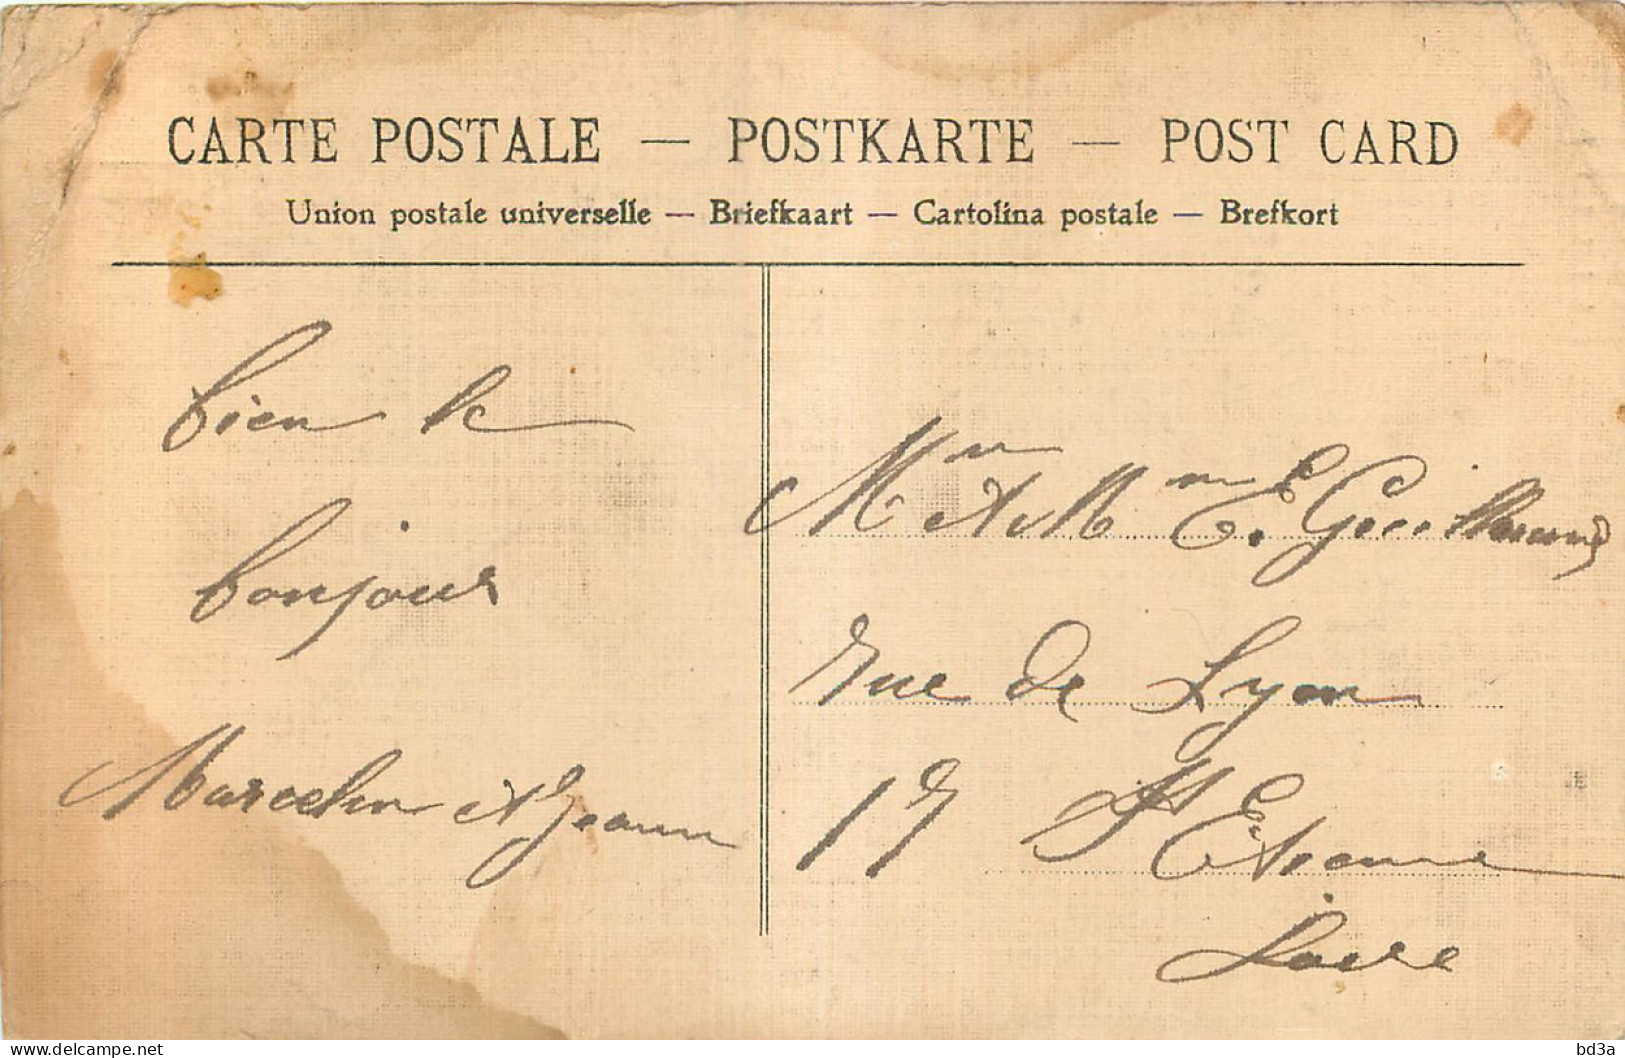 CARTE POSTALE — POSTKARTE — POST CARD
Union postale universelle — Briefkaart — Cartolina postale — Brefkort
bien le
bonjour
Marcelin et Jeanne
Mr et Mme E. Guillaume
Rue de Lyon
17 St Etienne
Loire
www.delcampe.net
bd3a